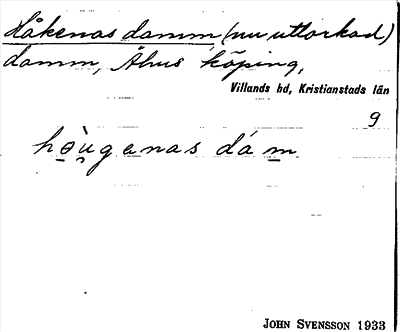 Håkenas damm, (nu uttorkad)
damm, Åhus köping,
Villands hd, Kristianstads län
9
hə̠ù̯genas dá m̠
JOHN SVENSSON 1933